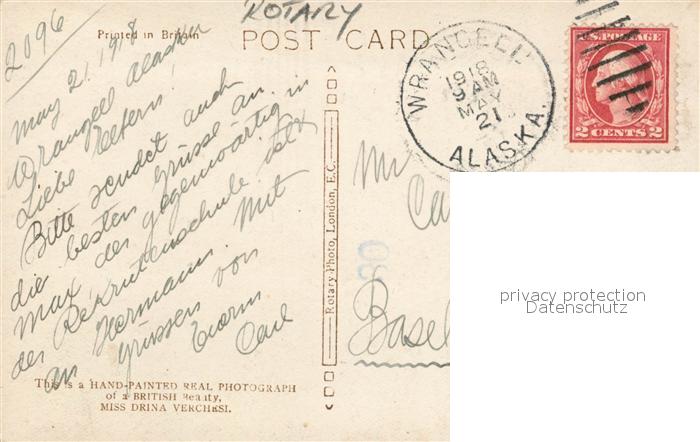 2096
ROTARY
Printed in Britain
POST CARD
WRANGELL
1918
9 AM
MAY
21
ALASKA.
U.S. POSTAGE
2 CENTS 2
May 21, 1918
Wrangell Alaska
Liebe Eltern!
Bitte sendet auch
die besten Grüsse an
Max der gegenwärtig in
der Rekrutenschule ist &
an Hermann. Mit
Grüssen von
Euerm
Carl
Rotary Photo, London, E.C.
Mr
Ca
80
Basel
privacy protection
Datenschutz
This is a HAND-PAINTED REAL PHOTOGRAPH
of a BRITISH Beauty,
MISS DRINA VERCHESI.